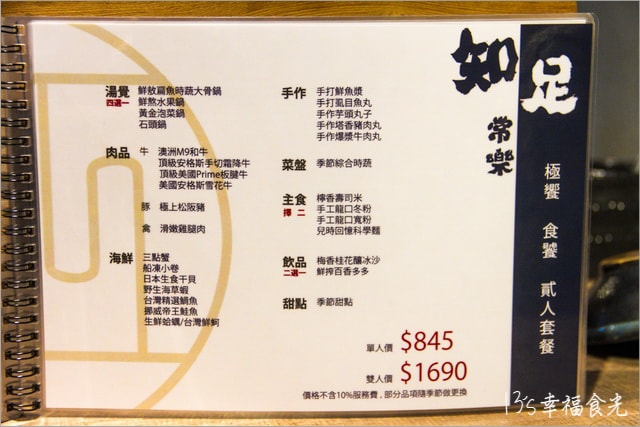 知足
常樂
極饗 食饕 貳人套餐
湯覺 鮮敖扁魚時蔬大骨鍋
四選一 鮮熬水果鍋
黃金泡菜鍋
石頭鍋
肉品 牛 澳洲M9和牛
頂級安格斯手切霜降牛
頂級美國Prime板腱牛
美國安格斯雪花牛
豚 極上松阪豬
禽 滑嫩雞腿肉
海鮮 三點蟹
船凍小卷
日本生食干貝
野生海草蝦
台灣精選鯛魚
挪威帝王鮭魚
生鮮蛤蠣/台灣鮮蚵
手作 手打鮮魚漿
手打虱目魚丸
手作芋頭丸子
手作塔香豬肉丸
手作爆漿牛肉丸
菜盤 季節綜合時蔬
主食 檸香壽司米
擇二 手工龍口冬粉
手工龍口寬粉
兒時回憶科學麵
飲品 梅香桂花釀冰沙
二選一 鮮搾百香多多
甜點 季節甜點
單人價 $845
雙人價 $1690
價格不含10%服務費，部分品項隨季節做更換
13's幸福食光